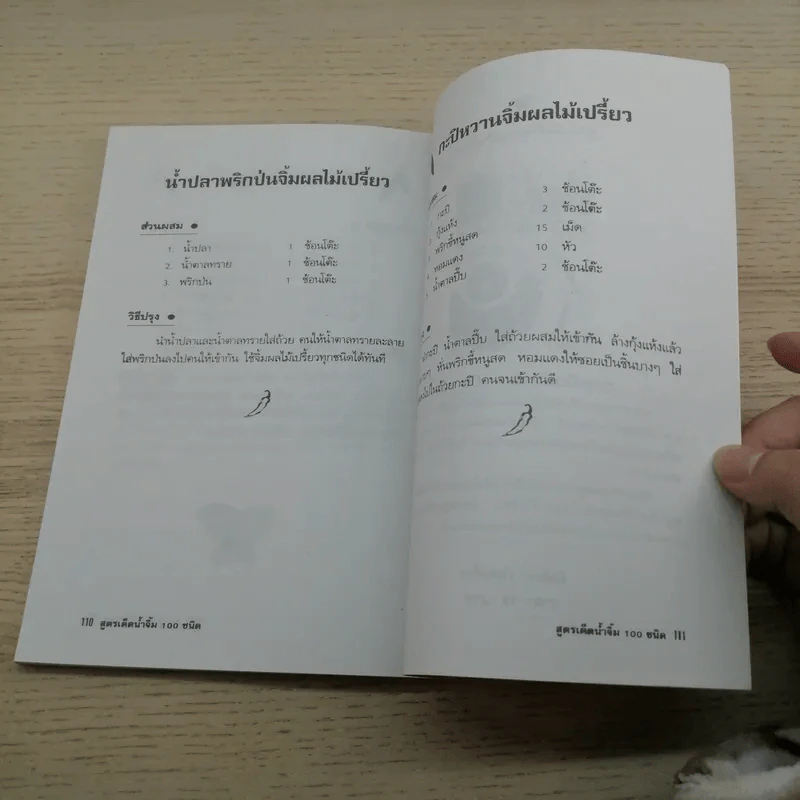 น้ำปลาพริกป่นจิ้มผลไม้เปรี้ยว
ส่วนผสม
1. น้ำปลา 1 ช้อนโต๊ะ
2. น้ำตาลทราย 1 ช้อนโต๊ะ
3. พริกป่น 1 ช้อนโต๊ะ
วิธีปรุง
นำน้ำปลาและน้ำตาลทรายใส่ถ้วย คนให้น้ำตาลทรายละลาย
ใส่พริกป่นลงไปคนให้เข้ากัน ใช้จิ้มผลไม้เปรี้ยวทุกชนิดได้ทันที
110 สูตรเด็ดน้ำจิ้ม 100 ชนิด
กะปิหวานจิ้มผลไม้เปรี้ยว
กะปิ 3 ช้อนโต๊ะ
กุ้งแห้ง 2 ช้อนโต๊ะ
พริกขี้หนูสด 15 เม็ด
หอมแดง 10 หัว
น้ำตาลปี๊บ 2 ช้อนโต๊ะ
น้ำตาลปี๊บ ใส่ถ้วยผสมให้เข้ากัน ล้างกุ้งแห้งแล้ว
หั่นพริกขี้หนูสด หอมแดงให้ซอยเป็นชิ้นบางๆ ใส่
ในถ้วยกะปิ คนจนเข้ากันดี
สูตรเด็ดน้ำจิ้ม 100 ชนิด 111